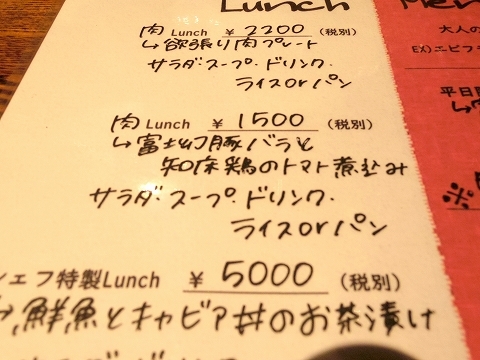 Lunch
肉 Lunch ¥ 2200 (税別)
↳欲張り肉プレート
サラダ・スープ・ドリンク・
ライスorパン
肉 Lunch ¥ 1500 (税別)
↳富士幻豚バラと
知床鶏のトマト煮込み
サラダ・スープ・ドリンク・
ライスorパン
シェフ特製Lunch ¥ 5000 (税別)
↳鮮魚とキャビア丼のお茶漬け
Men
大人の
EX)エビフ
平日
※